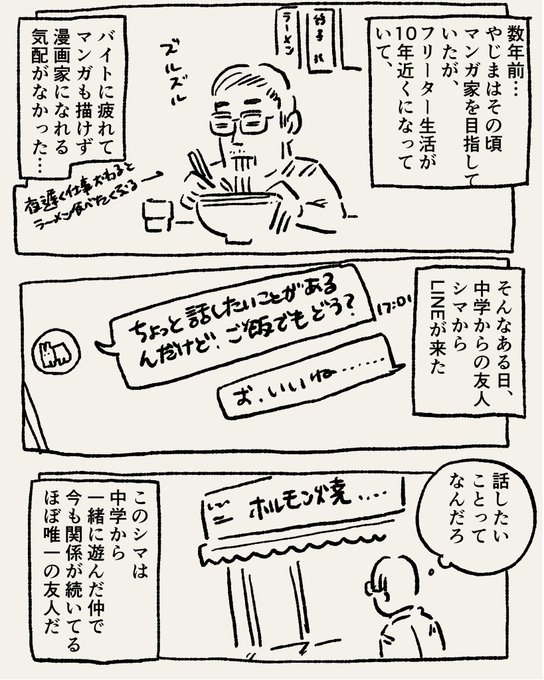 数年前…
やじまはその頃
マンガ家を目指して
いたが、
フリーター生活が
10年近くになって
いて、
ラーメン
ズルズル
バイトに疲れて
マンガも描けず
漫画家になれる
気配がなかった…
夜遅く仕事おわると
ラーメン食べたくなる→
そんなある日、
中学からの友人
シマから
LINEが来た
ちょっと話したいことがある
んだけど、ご飯でもどう?
17:01
お、いいね……
話したい
ことって
なんだろ
ホルモン焼....
このシマは
中学から
一緒に遊んだ仲で
今も関係が続いてる
ほぼ唯一の友人だ